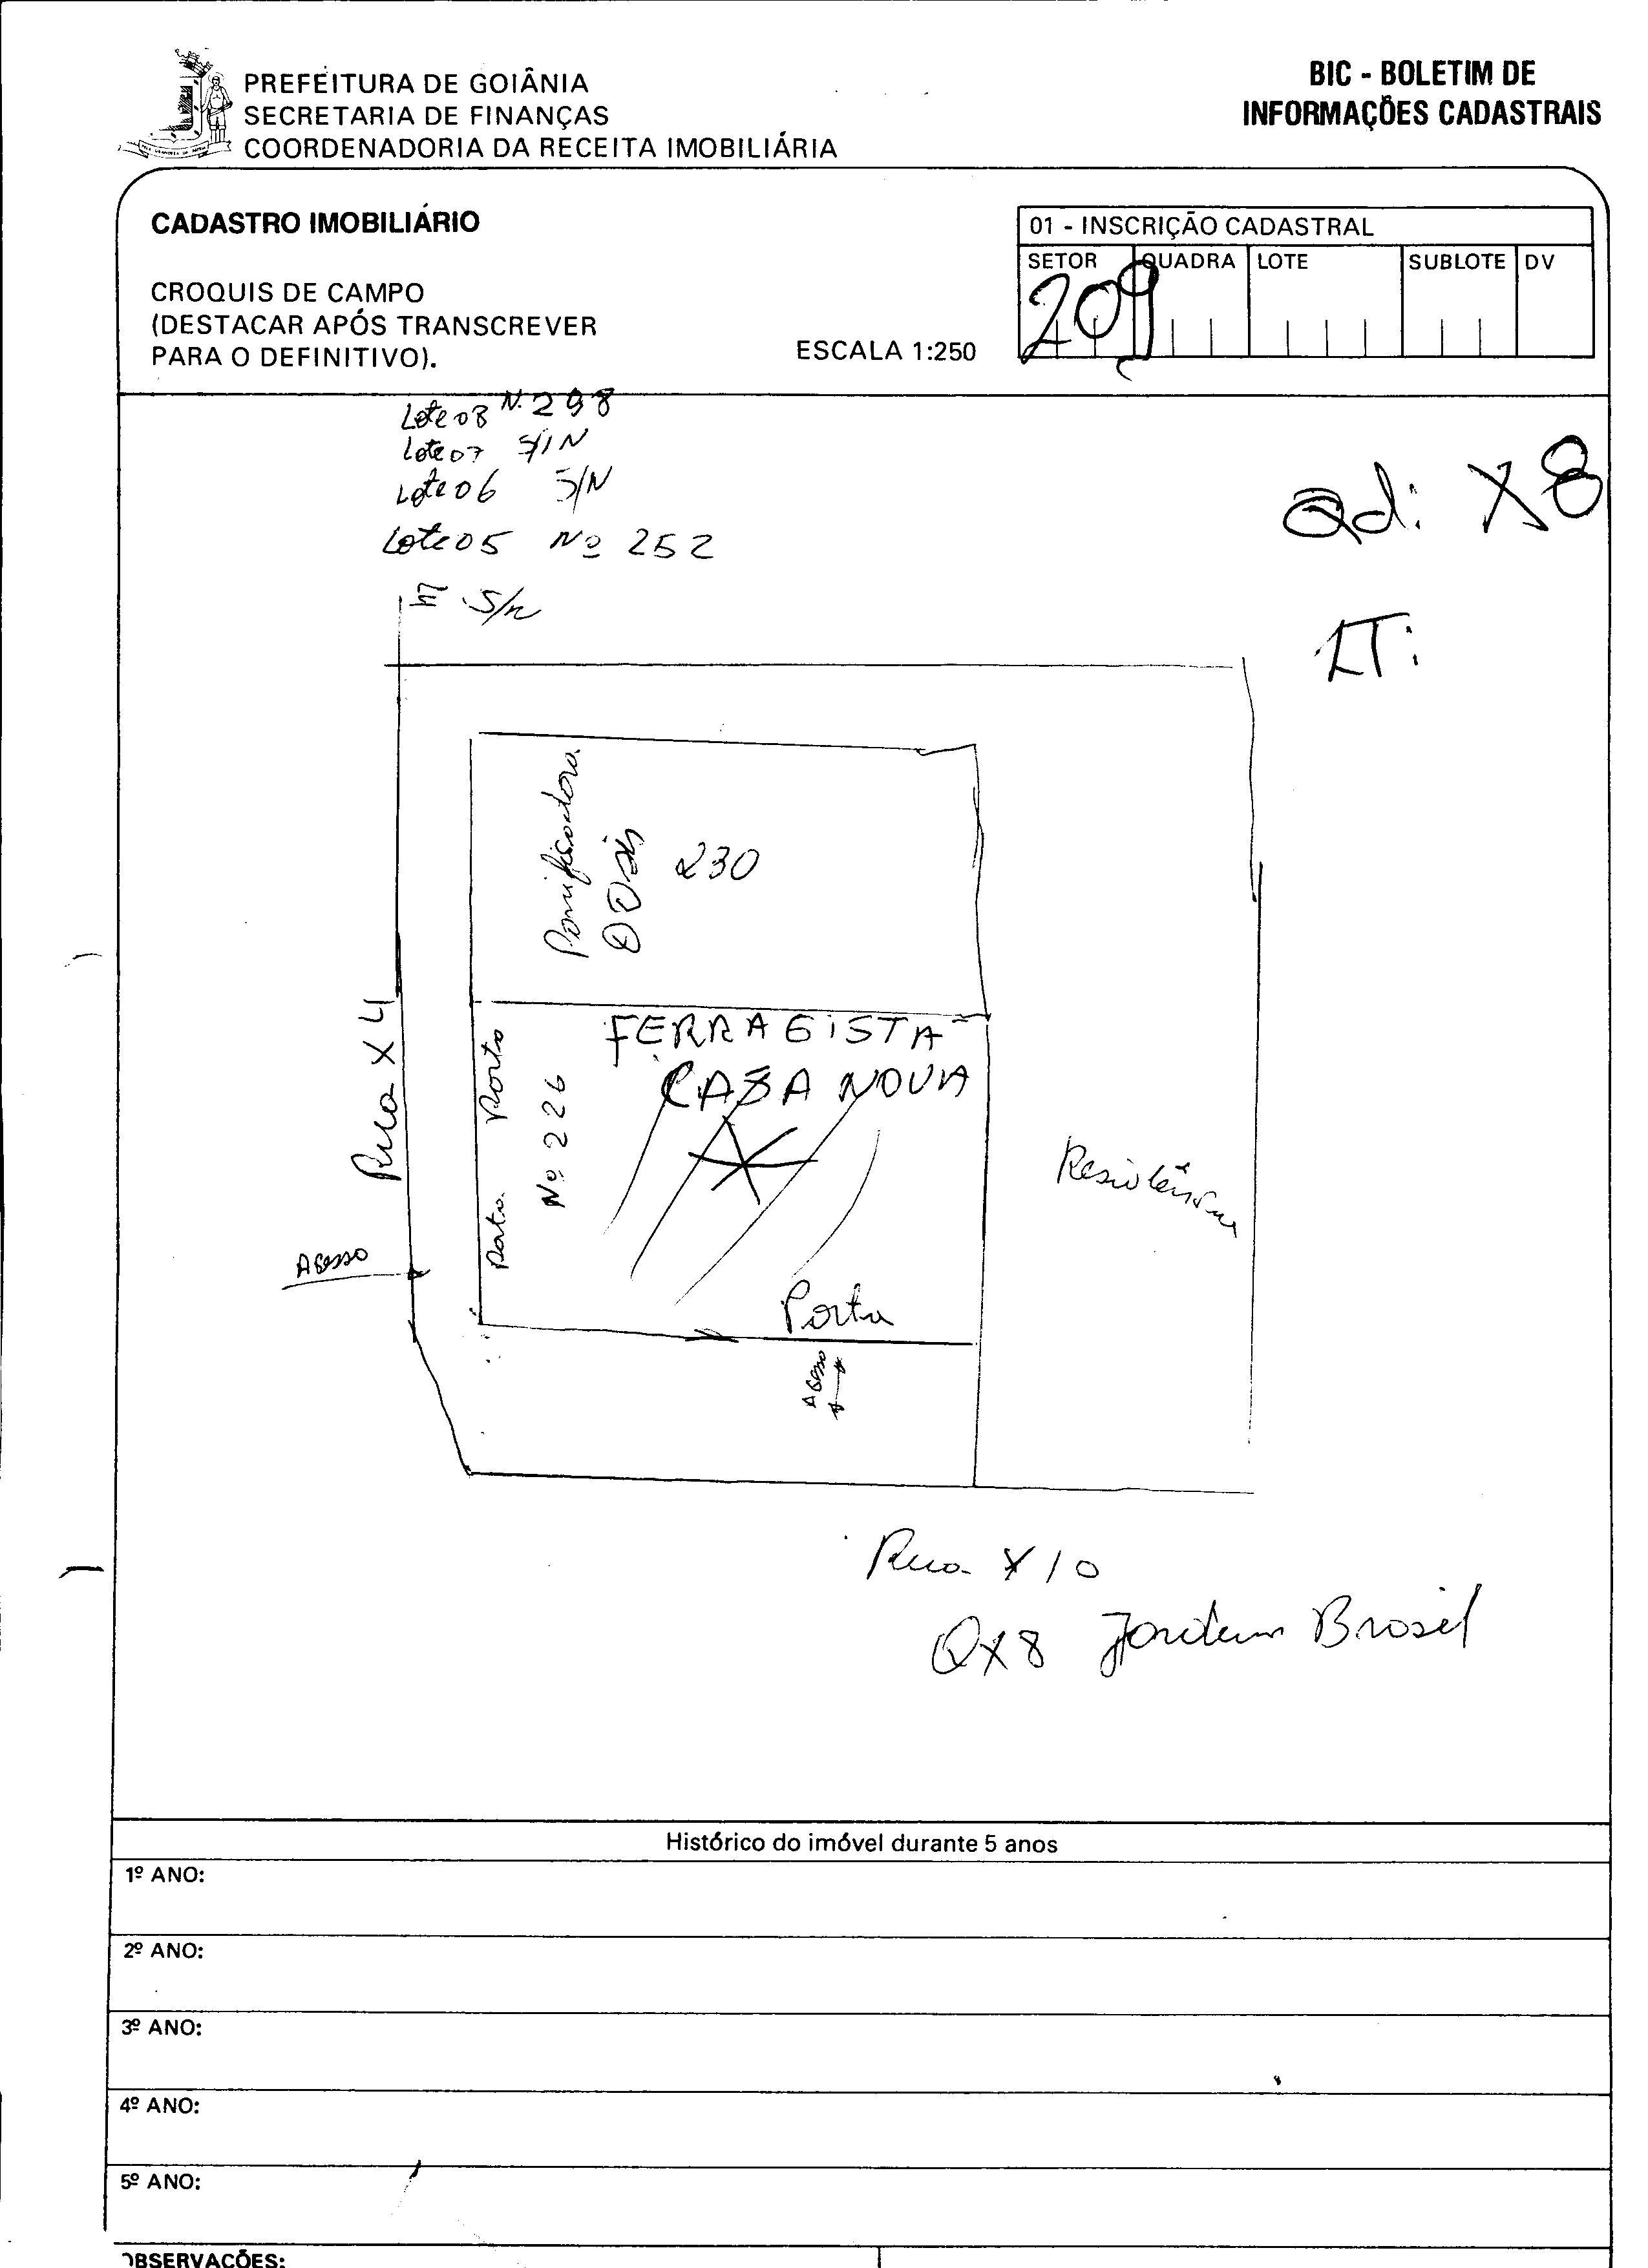 PREFEITURA DE GOIÂNIA
SECRETARIA DE FINANÇAS
COORDENADORIA DA RECEITA IMOBILIÁRIA
BIC - BOLETIM DE
INFORMAÇÕES CADASTRAIS
CADASTRO IMOBILIÁRIO
CROQUIS DE CAMPO
(DESTACAR APÓS TRANSCREVER
PARA O DEFINITIVO).
ESCALA 1:250
01 - INSCRIÇÃO CADASTRAL
SETOR QUADRA LOTE SUBLOTE DV
209
Lote 08 N. 298
Lote 07 S/N
Lote 06 S/N
Lote 05 Nº 252
S/N
Qd: X8
LT:
Panificadora
Oásis
230
Rua X4
FERRAGISTA
CASA NOVA
Porta Porta
Nº 226
Residência
Acesso
Porta
Acesso
Rua X10
QX8 Jardim Brasil
Histórico do imóvel durante 5 anos
1º ANO:
2º ANO:
3º ANO:
4º ANO:
5º ANO:
OBSERVAÇÕES: